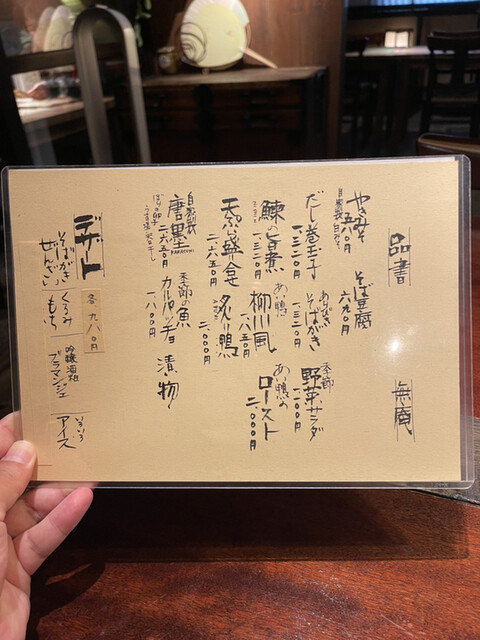 品書
無庵
やきみそ
自家製 白みそ
五六〇円
そば豆腐
六九〇円
だし巻玉子
一、三二〇円
あらびき
そばがき
一、三二〇円
季節
野菜サラダ
鰊の旨煮
一、三二〇円
あい鴨
柳川風
一、八五〇円
あい鴨の
ロースト
二、〇〇〇円
天ぷら盛合せ
二、六五〇円
炙り鴨
二、〇〇〇円
自家製
唐墨
KARASUMI
二、六五〇円
季節の魚
カルパッチョ
一、八〇〇円
漬・物
デザート
各 九八〇円
そばがき
ぜんざい
くるみ
もち
吟醸酒粕
ブラマンジェ
いろいろ
アイス